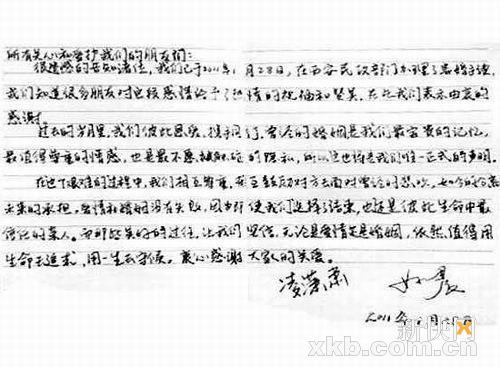 所有关心和爱护我们的朋友们：
很遗憾的告知诸位，我们已于2011年1月28日，在西安民政部门办理了离婚手续，
我们知道很多朋友对这段感情给予了热情的祝福和赞美，在此我们表示由衷的
感谢。
过去的岁月里，我们彼此恩爱，携手同行，曾经的婚姻是我们最宝贵的记忆，
最值得尊重的情感，也是最不愿被触碰的隐私，所以这也将是我们唯一正式的声明。
在这个艰难的过程中，我们相互尊重，甚至鼓励对方去面对曾经的悲欢，
未来的承担。爱情和婚姻没有失败，因为即使我们选择了结束，也还是彼此生命中最
信任的亲人。而那些美好的过往，让我们坚信，无论是爱情还是婚姻，依然值得用
生命去追求，用一生去守候。衷心感谢大家的关爱。
凌潇肃 姚晨
2011年 月 日
新快网
xkb.com.cn